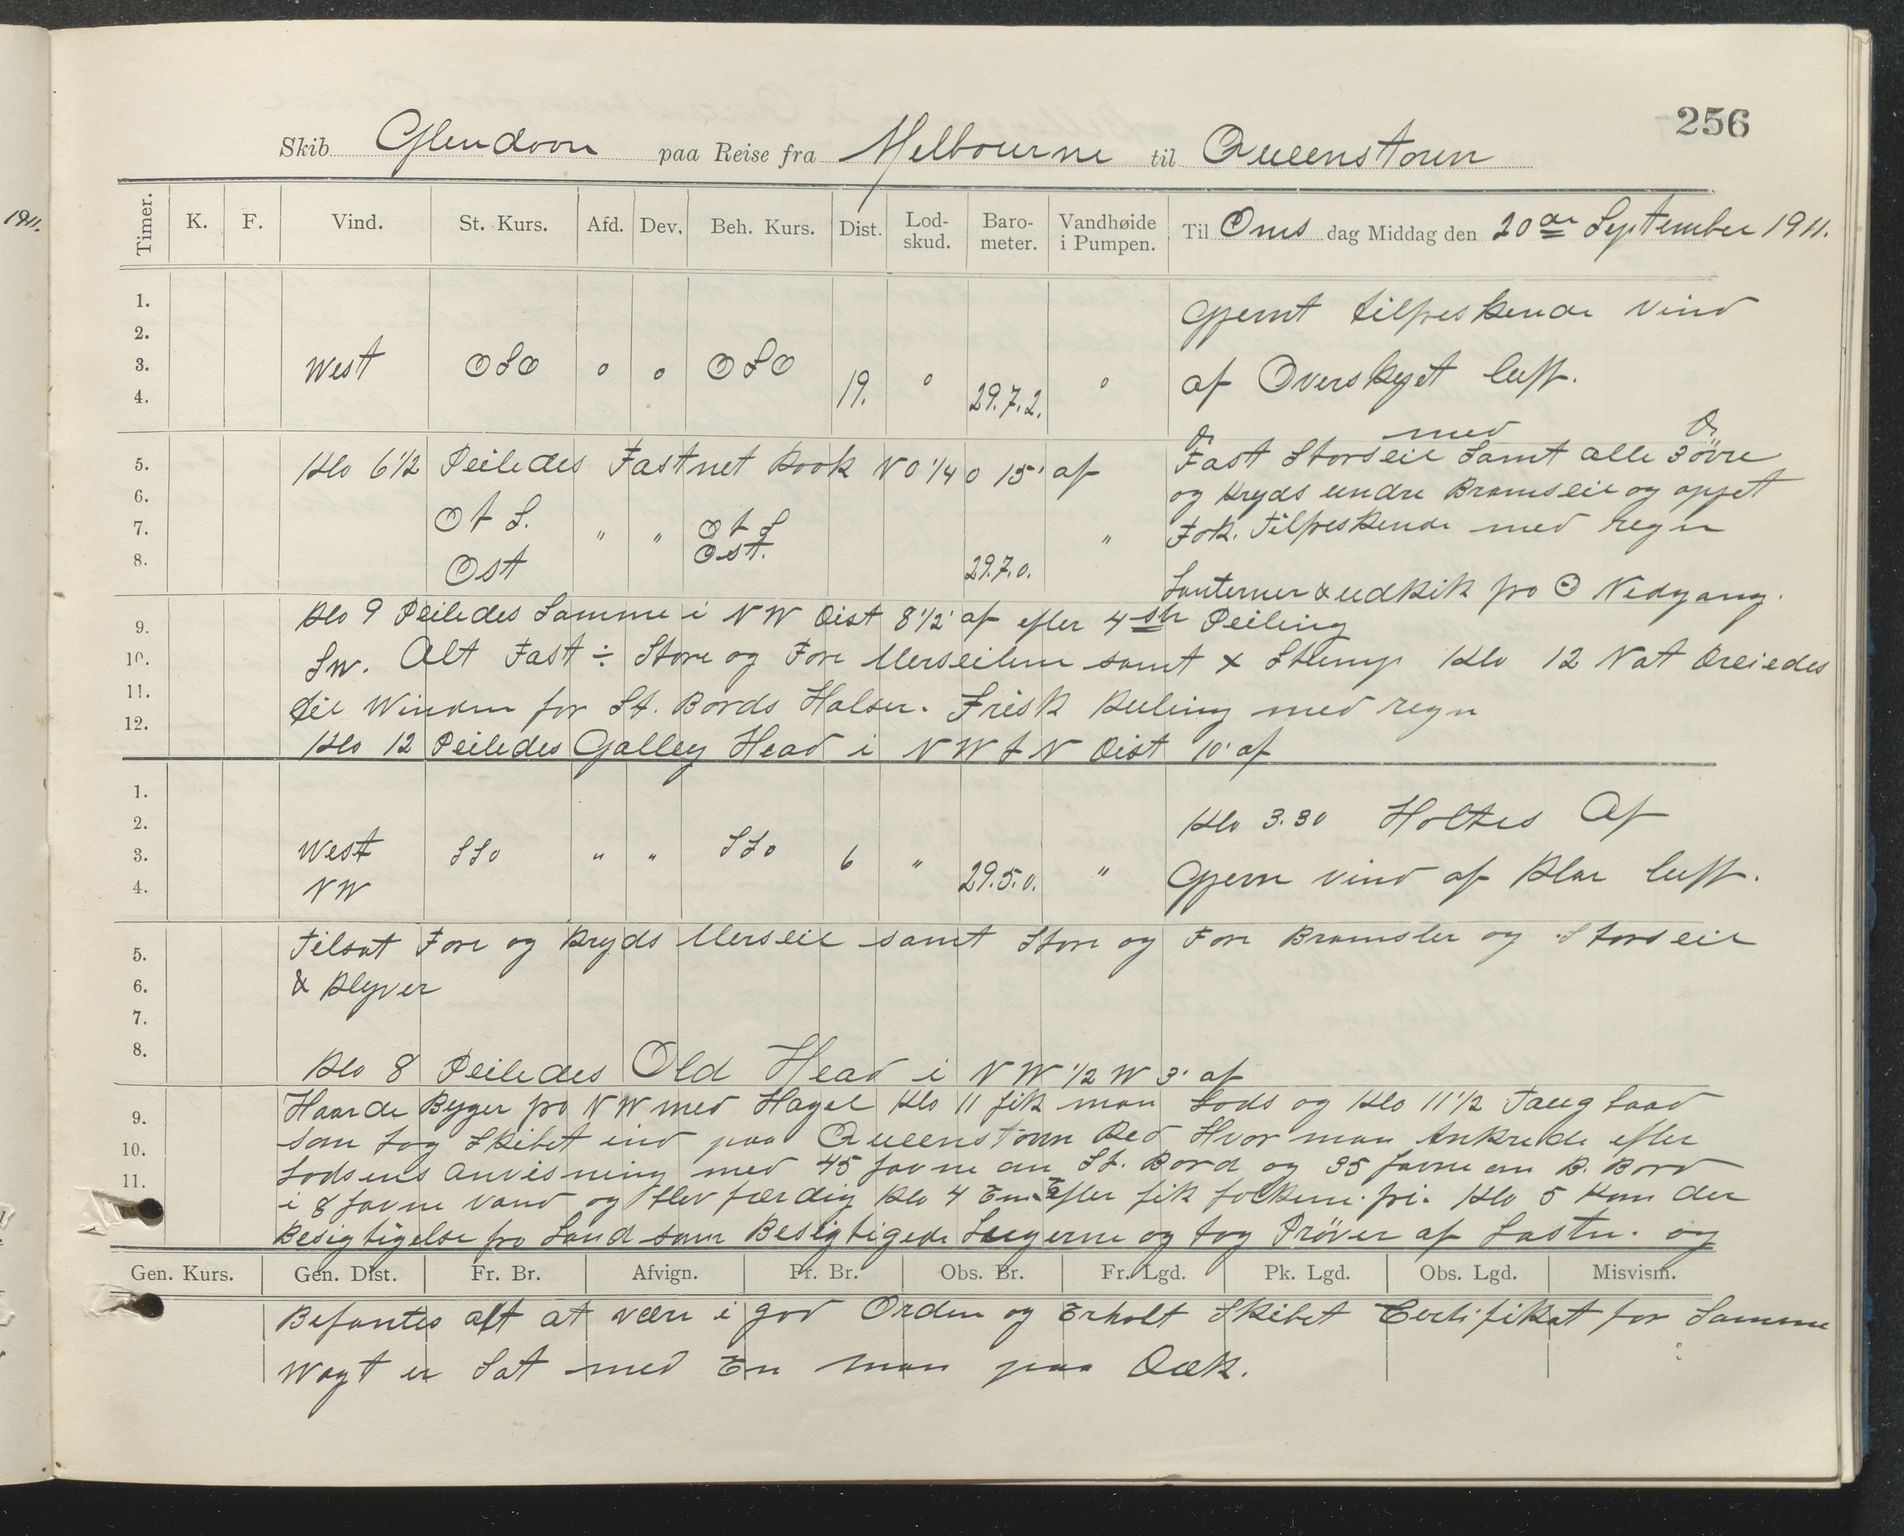 256
1911.
Skib Glendoon paa Reise fra Melbourne til Queenstown
Timer. K. F. Vind. St. Kurs. Afd. Dev. Beh. Kurs. Dist. Lod-skud. Baro-meter. Vandhøide i Pumpen. Til Ons dag Middag den 20de September 1911.
1. Gjemt tilfreskende vind
2.
3. West OSO o o OSO 19. o 29.7.2. o af Overskyet luft.
4.
med
5. Klo 6 1/2 Peiledes Fastnet Rook NO 1/4 O 15' af Fast Storseil Samt alle 3 övre
6. og Kryds undre Bramseil og opjet
7. O t S. " " O t S " Fok. Tilfreskende med regn
8. Ost Ost. 29.7.0.
Lanterner & udkik fro ⊙ Nedgang.
9. Klo 9 Peiledes Samme i NW Dist 8 1/2' af efter 4 Peiling
10. SW. Alt Fast ÷ Store og Fore Merseilene samt x Stump Klo 12 Nat Dreiedes
11. til Winden for St. Bords Halser. Frisk Kuling med regn
12. Klo 12 Peiledes Galley Head i NW t N Dist 10' af
1.
2. Klo 3.30 Holtes Af
3. West SSO " " SSO 6 " 29.5.0. "
4. NW Gjevn vind af Klar luft.
5. Tilsat Fore og Kryds Merseil samt Store og Fore Bramsler og Storseil
6. & Klyver
7.
8. Klo 8 Peiledes Old Head i NW 1/2 W 3' af
9. Haarde Byger fro NW med Hagel Klo 11 fik man Lods og Klo 11 1/2 Taugbaad
10. Som tog Skibet ind paa Queenstown Red Hvor man Ankrede efter
11. Lodsens anvisning med 45 favne om St. Bord og 35 favne om B. Bord
i 8 favne vand og blev færdig Klo 4 Em. Efter fik folkene fri. Klo 5 Kom der
Besigtigelse fro Land som Besigtigede Lugerne og tog Prøver af Lasten. og
Gen. Kurs. Gen. Dist. Fr. Br. Afvign. Fr. Br. Obs. Br. Fr. Lgd. Pk. Lgd. Obs. Lgd. Misvism.
Befantes alt at være i god Orden og Erholt Skibet Certifikat for Samme
Wagt er Sat med En man paa Dæk.